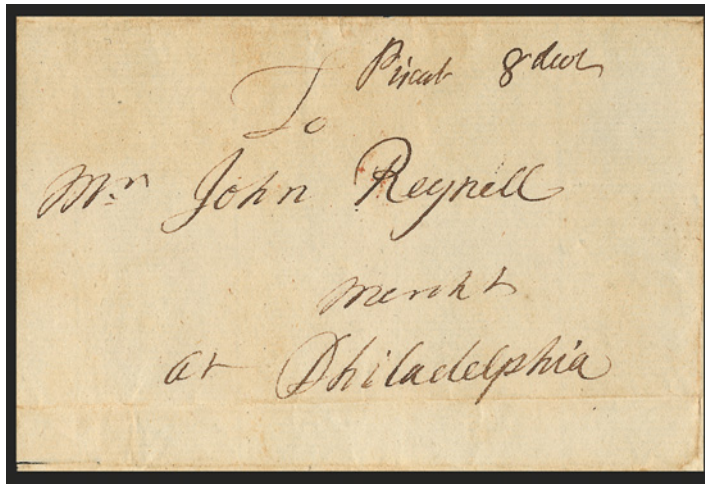 Piscat 8 dwt
To
Mr. John Reynell
Mercht
at Philadelphia